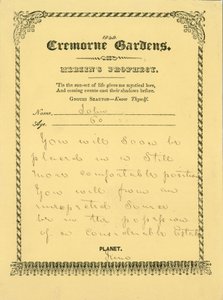 1840.
Cremorne Gardens.
MERLIN'S PROPHECY.
'Tis the sun-set of life gives me mystical lore,
And coming events cast their shadows before.
GNOTHI SEAUTON—Know Thyself.
Name, John
Age, 60
You will soon be
placed in a still
more comfortable position
You will from an
unexpected source
be in the possession
of a considerable Estate
PLANET.
Juno